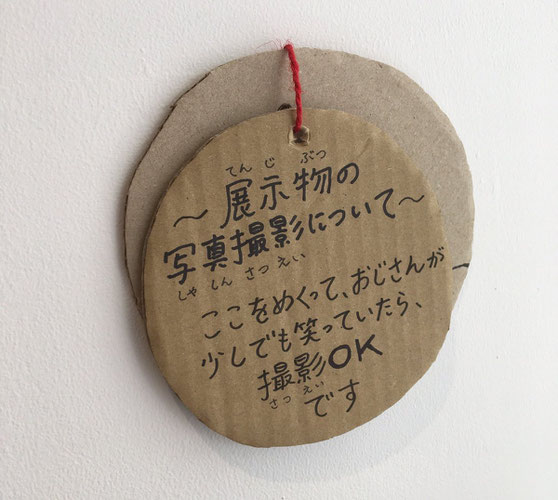 てんじぶつ
～展示物の
写真撮影について～
しゃしんさつえい
ここをめくって、おじさんが
少しでも笑っていたら、
撮影OK
さつえい
です